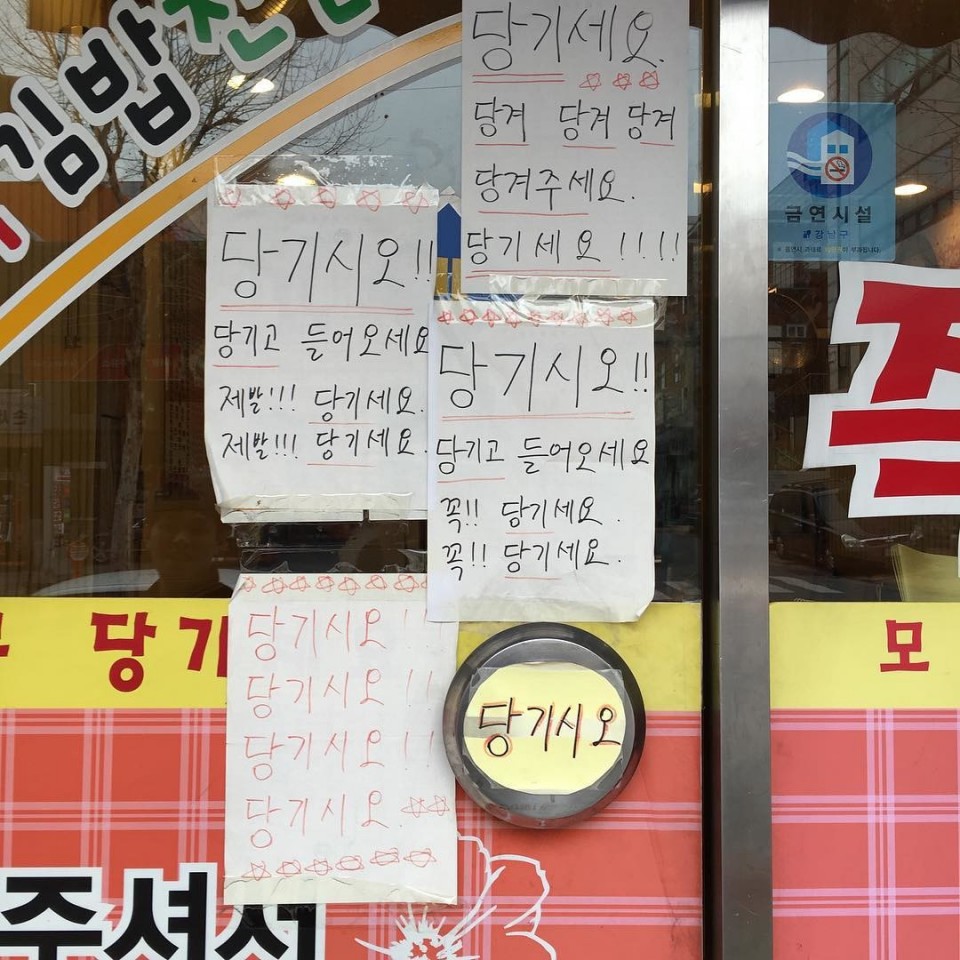 김밥천
당기세요.
당겨 당겨 당겨
당겨주세요.
당기세요!!!!
당기시오!!
당기고 들어오세요
제발!!! 당기세요.
제발!!! 당기세요.
당기시오!!
당기고 들어오세요
꼭!! 당기세요.
꼭!! 당기세요.
당기시오!!
당기시오!!
당기시오!!
당기시오.
당기시오
금연시설
강남구
당기
모
주셔서